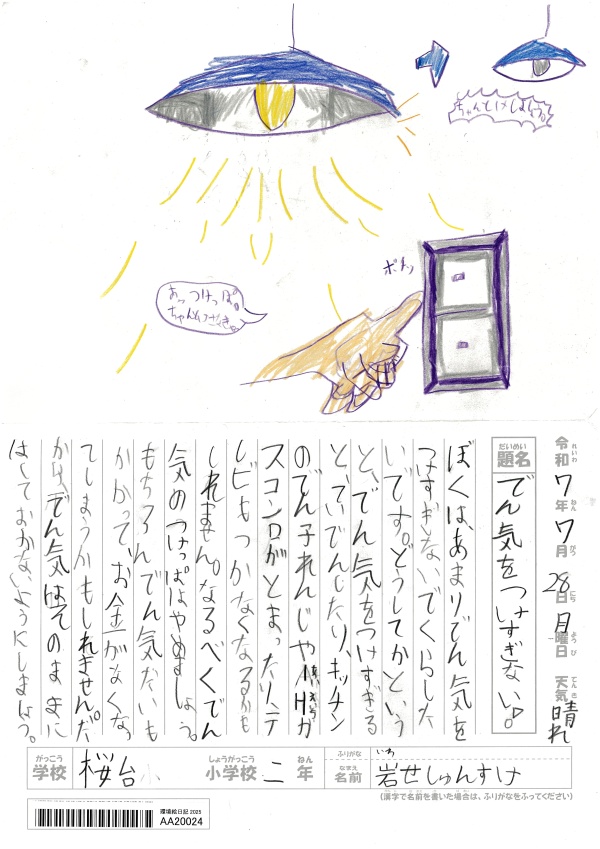 ちゃんとけしましょう。
ポチッ
あっつけっぱ。
令和7年7月28日月曜日 天気 晴れ
れいわ ねん がつ にち よう び てんき
だいめい
題名 でん気をつけすぎない。
ぼくは、あまりでん気を
つけすぎないでくらした
いです。どうしてかという
と、でん気をつけすぎる
と、ていでんしたり、キッチン
のでん子れんじやIHガ
スコンロがとまったり、テ
レビもつかなくなるかも
しれません。なるべくでん
気のつけっぱはやめましょう。
もちろんでん気だいも
かかって、お金がなくなっ
てしまうかもしれません。だ
から、でん気はそのままに
はしておかないようにしましょう。
がっこう しょうがっこう ねん
学校 桜台 小学校 二年
ふりがな いわ
なまえ
名前 岩せしゅんすけ
(漢字で名前を書いた場合は、ふりがなをふってください)
環境絵日記 2025
AA20024